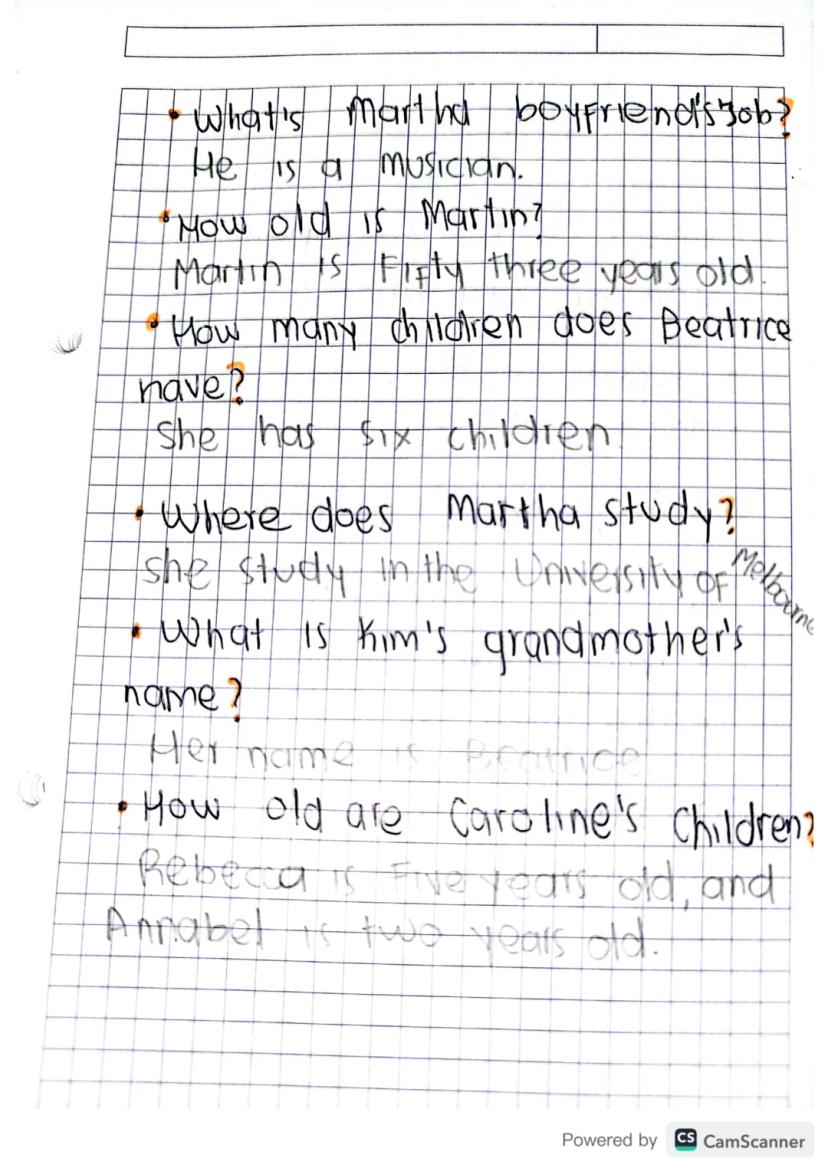 • What's Martha boyfriend's Job?
He is a musician.
• How old is Martin?
Martin is Fifty three years old.
• How many children does Beatrice
have?
She has six children
• Where does Martha study?
she study in the University of Melbourne
• What is Kim's grandmother's
name?
Her name is Beatrice
• How old are Caroline's Children?
Rebecca is Five years old, and
Annabel is two years old.
Powered by CS CamScanner